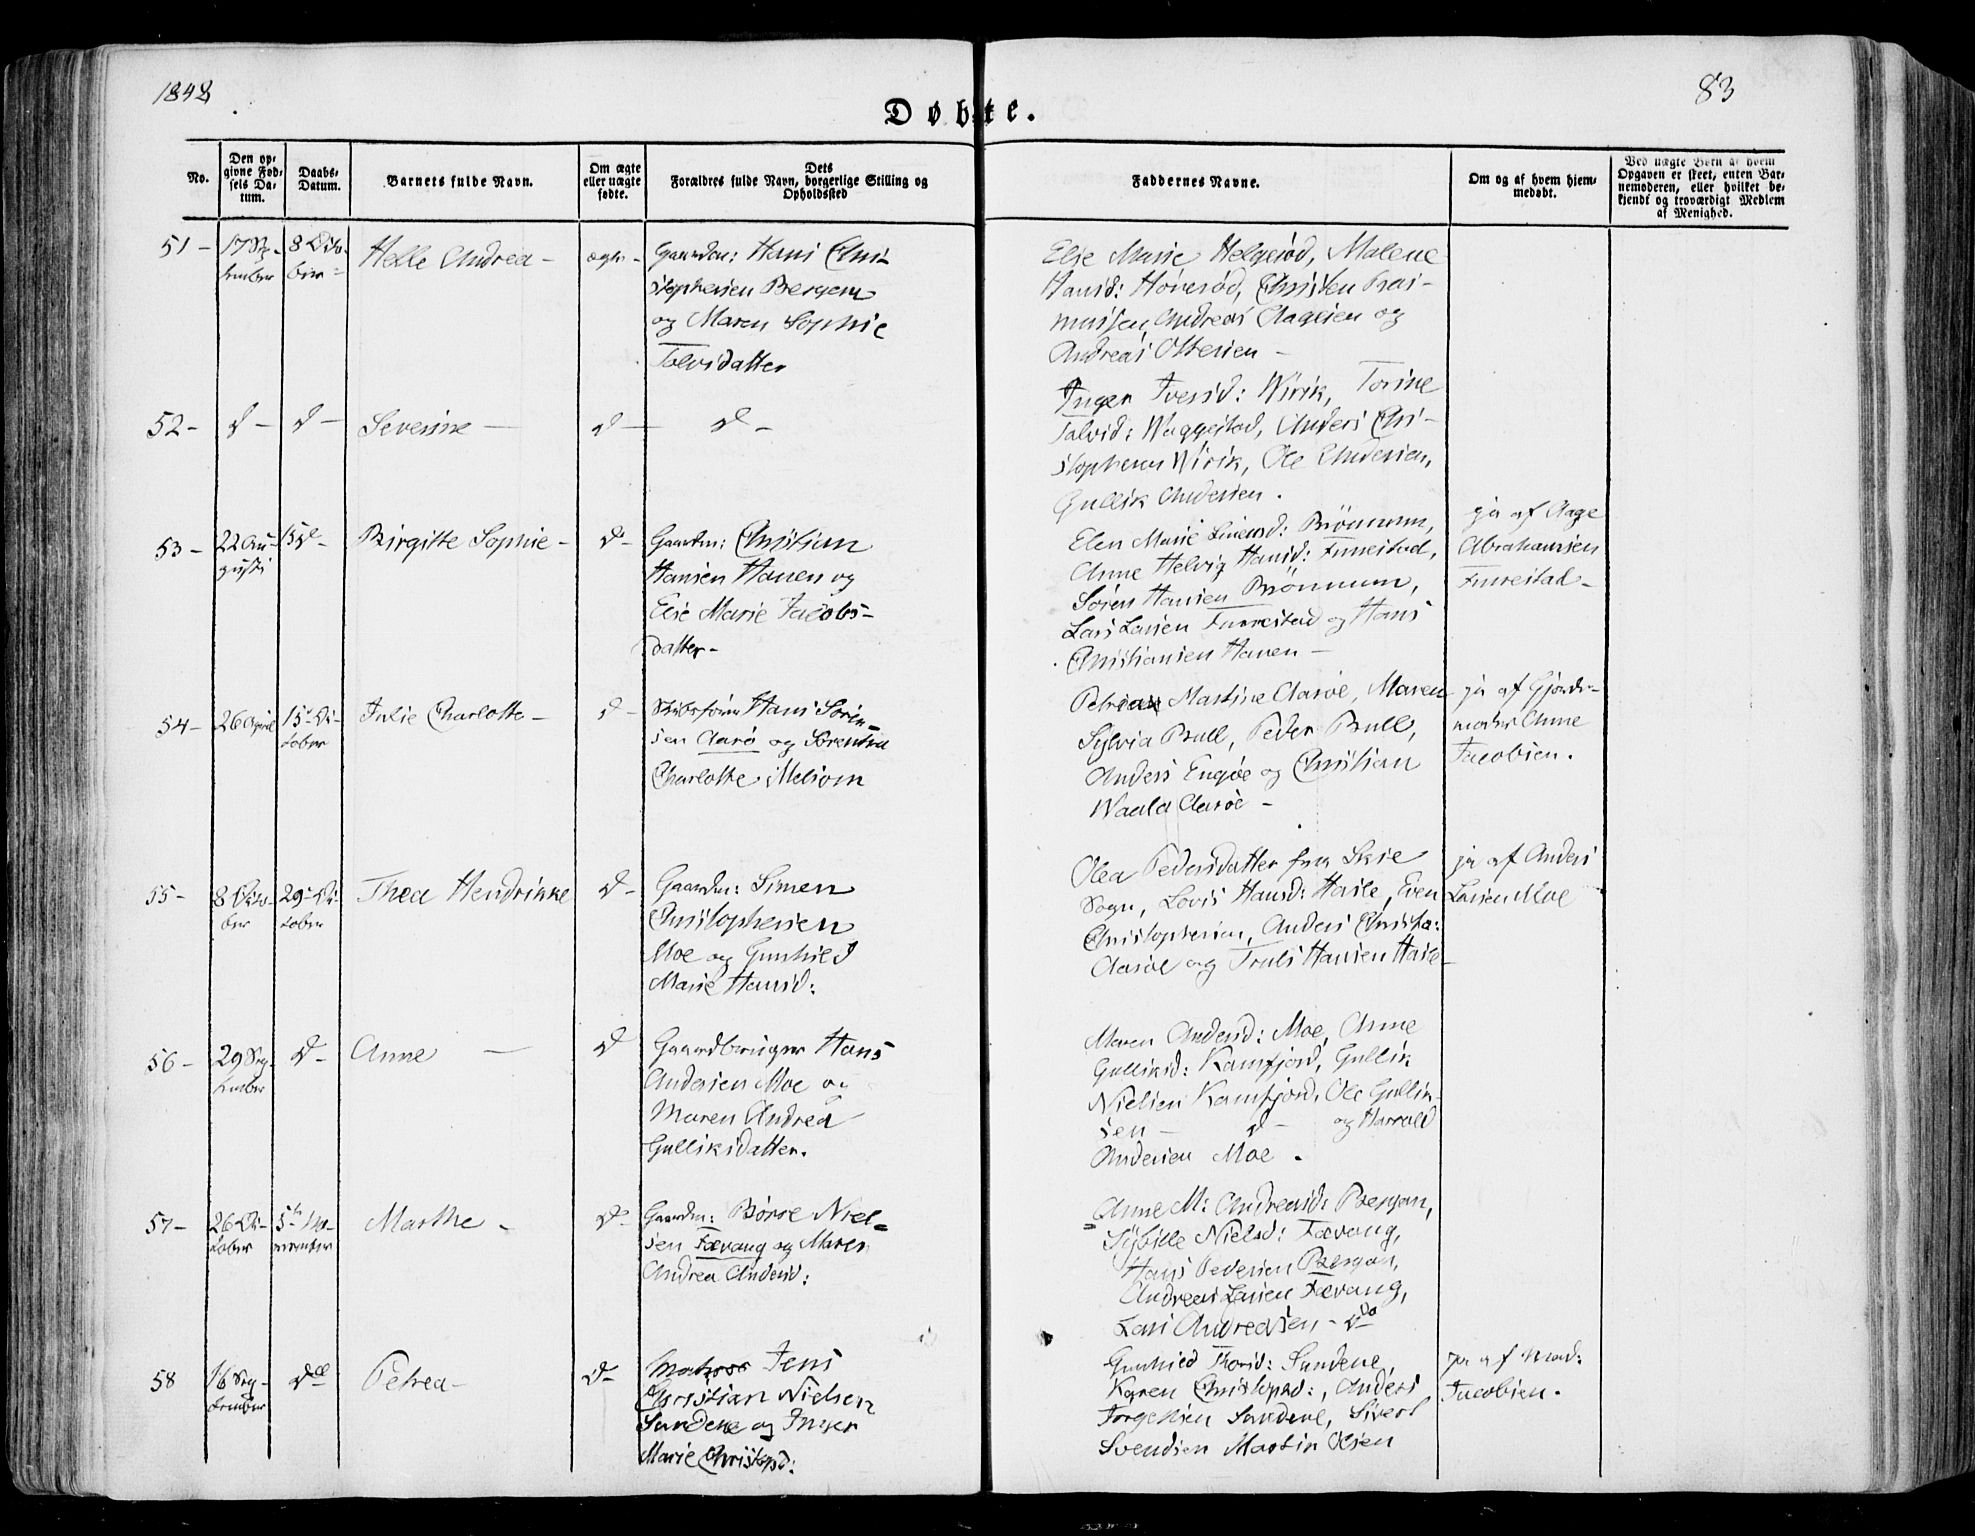 1848
83
Døbte.
No.
Den op-
givne Fød-
sels Da-
tum.
Daabs-
Datum.
Barnets fulde Navn.
Om ægte
eller uægte
fødte.
Dets
Forældres fulde Navn, borgerlige Stilling og
Opholdssted
Faddernes Navne.
Om og af hvem hjem-
medøbt.
Ved uægte Børn af hvem
Opgaven er skeet, enten Bar-
nemoderen, eller hvilket be-
kjendt og troværdigt Medlem
af Menighed.
51 -
17 Sep-
tember
8 Octo-
ber -
Helle Andrea -
ægte -
Gaardm: Hans Chri-
stophersen Bergem
og Maren Sophie
Tolvsdatter
Else Marie Helgerød, Malene
Hansd: Hønerød, Christen Ras-
mussen, Andreas Aagesen og
Andreas Ottersen -
52 -
d -
d -
Severine -
d -
d -
Inger Iversd: Wirik, Torine
Talvsd: Waggestad, Anders Chri-
stophersen Wirik, Ole Andersen,
Gullik Andersen.
53 -
22 Au-
gusti
15 d -
Birgitte Sophie -
d -
Gaardm: Christian
Hansen Hauen og
Else Marie Jacobs-
datter -
Elen Marie Simensd: Brönnum,
Anne Helvig Hansd: Furrestad,
Sören Hansen Brönnum,
Lars Larsen Furrestad og Hans
Christiansen Hauen -
ja af Aage
Abrahamsen
Furrestad -
54 -
26 April
15 Oc-
tober
Julie Charlotte -
d -
Skibsförer Hans Sören-
sen Aarø og Sorentha
Charlotte Melsom
Petrea Mastine Aaröe, Maren
Sylvia Bull, Peder Bull,
Anders Engöe og Christian
Waala Aaröe -
ja af Gjorde-
moder Anne
Jacobsen.
55 -
8 Octo-
ber
29 Oc-
tober
Thea Hendrikke
d -
Gaardm: Simen
Christophersen
Moe og Gunhild
Marie Hansd:
Olea Pedersdatter fra Skie
Sogn, Lovis Hansd: Hasle, Even
Christophersen, Anders Christo:
Aaröe og Truls Hansen Hasle -
ja af Anders
Larsen Moe
56 -
29 Sep-
tember
d -
Anne -
d
Gaardbruger Hans
Andersen Moe og
Maren Andrea
Gulliksdatter.
Maren Andersd: Moe, Anne
Gulliksd: Kamfjord, Gullik
Nielsen Kamfjord, Ole Gullik-
sen - d - og Harrald
Andersen Moe.
57 -
26 Oc-
tober
5te No-
vember
Marthe -
d -
Gaardm: Börre Niel-
sen Fævang og Maren
Andrea Andersd:
Anne M: Andreasd: Bergan,
Sybille Nielsd: Fævang,
Hans Pedersen Bergan,
Andreas Larsen Fævang,
Lars Andreasen - do
58
16 Sep-
tember
do
Petrea -
d -
Matros Jens
Christian Nielsen
Sundene og Inger
Marie Christopsd:
Gunhild Thorsd: Sundene,
Karen Christopsd:, Anders
Jørgensen Sundene, Sivert
Svendsen Martin Olsen
ja af Mad:
Jacobsen.